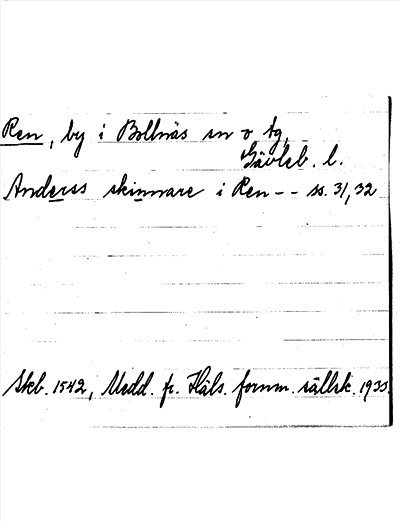 Ren, by i Bollnäs sn o tg,
Gävleb. l.
Anderss skinnare i Ren -- ss. 31, 32
Skb. 1542, Medd. fr. Häls. fornm. sällsk. 1933.